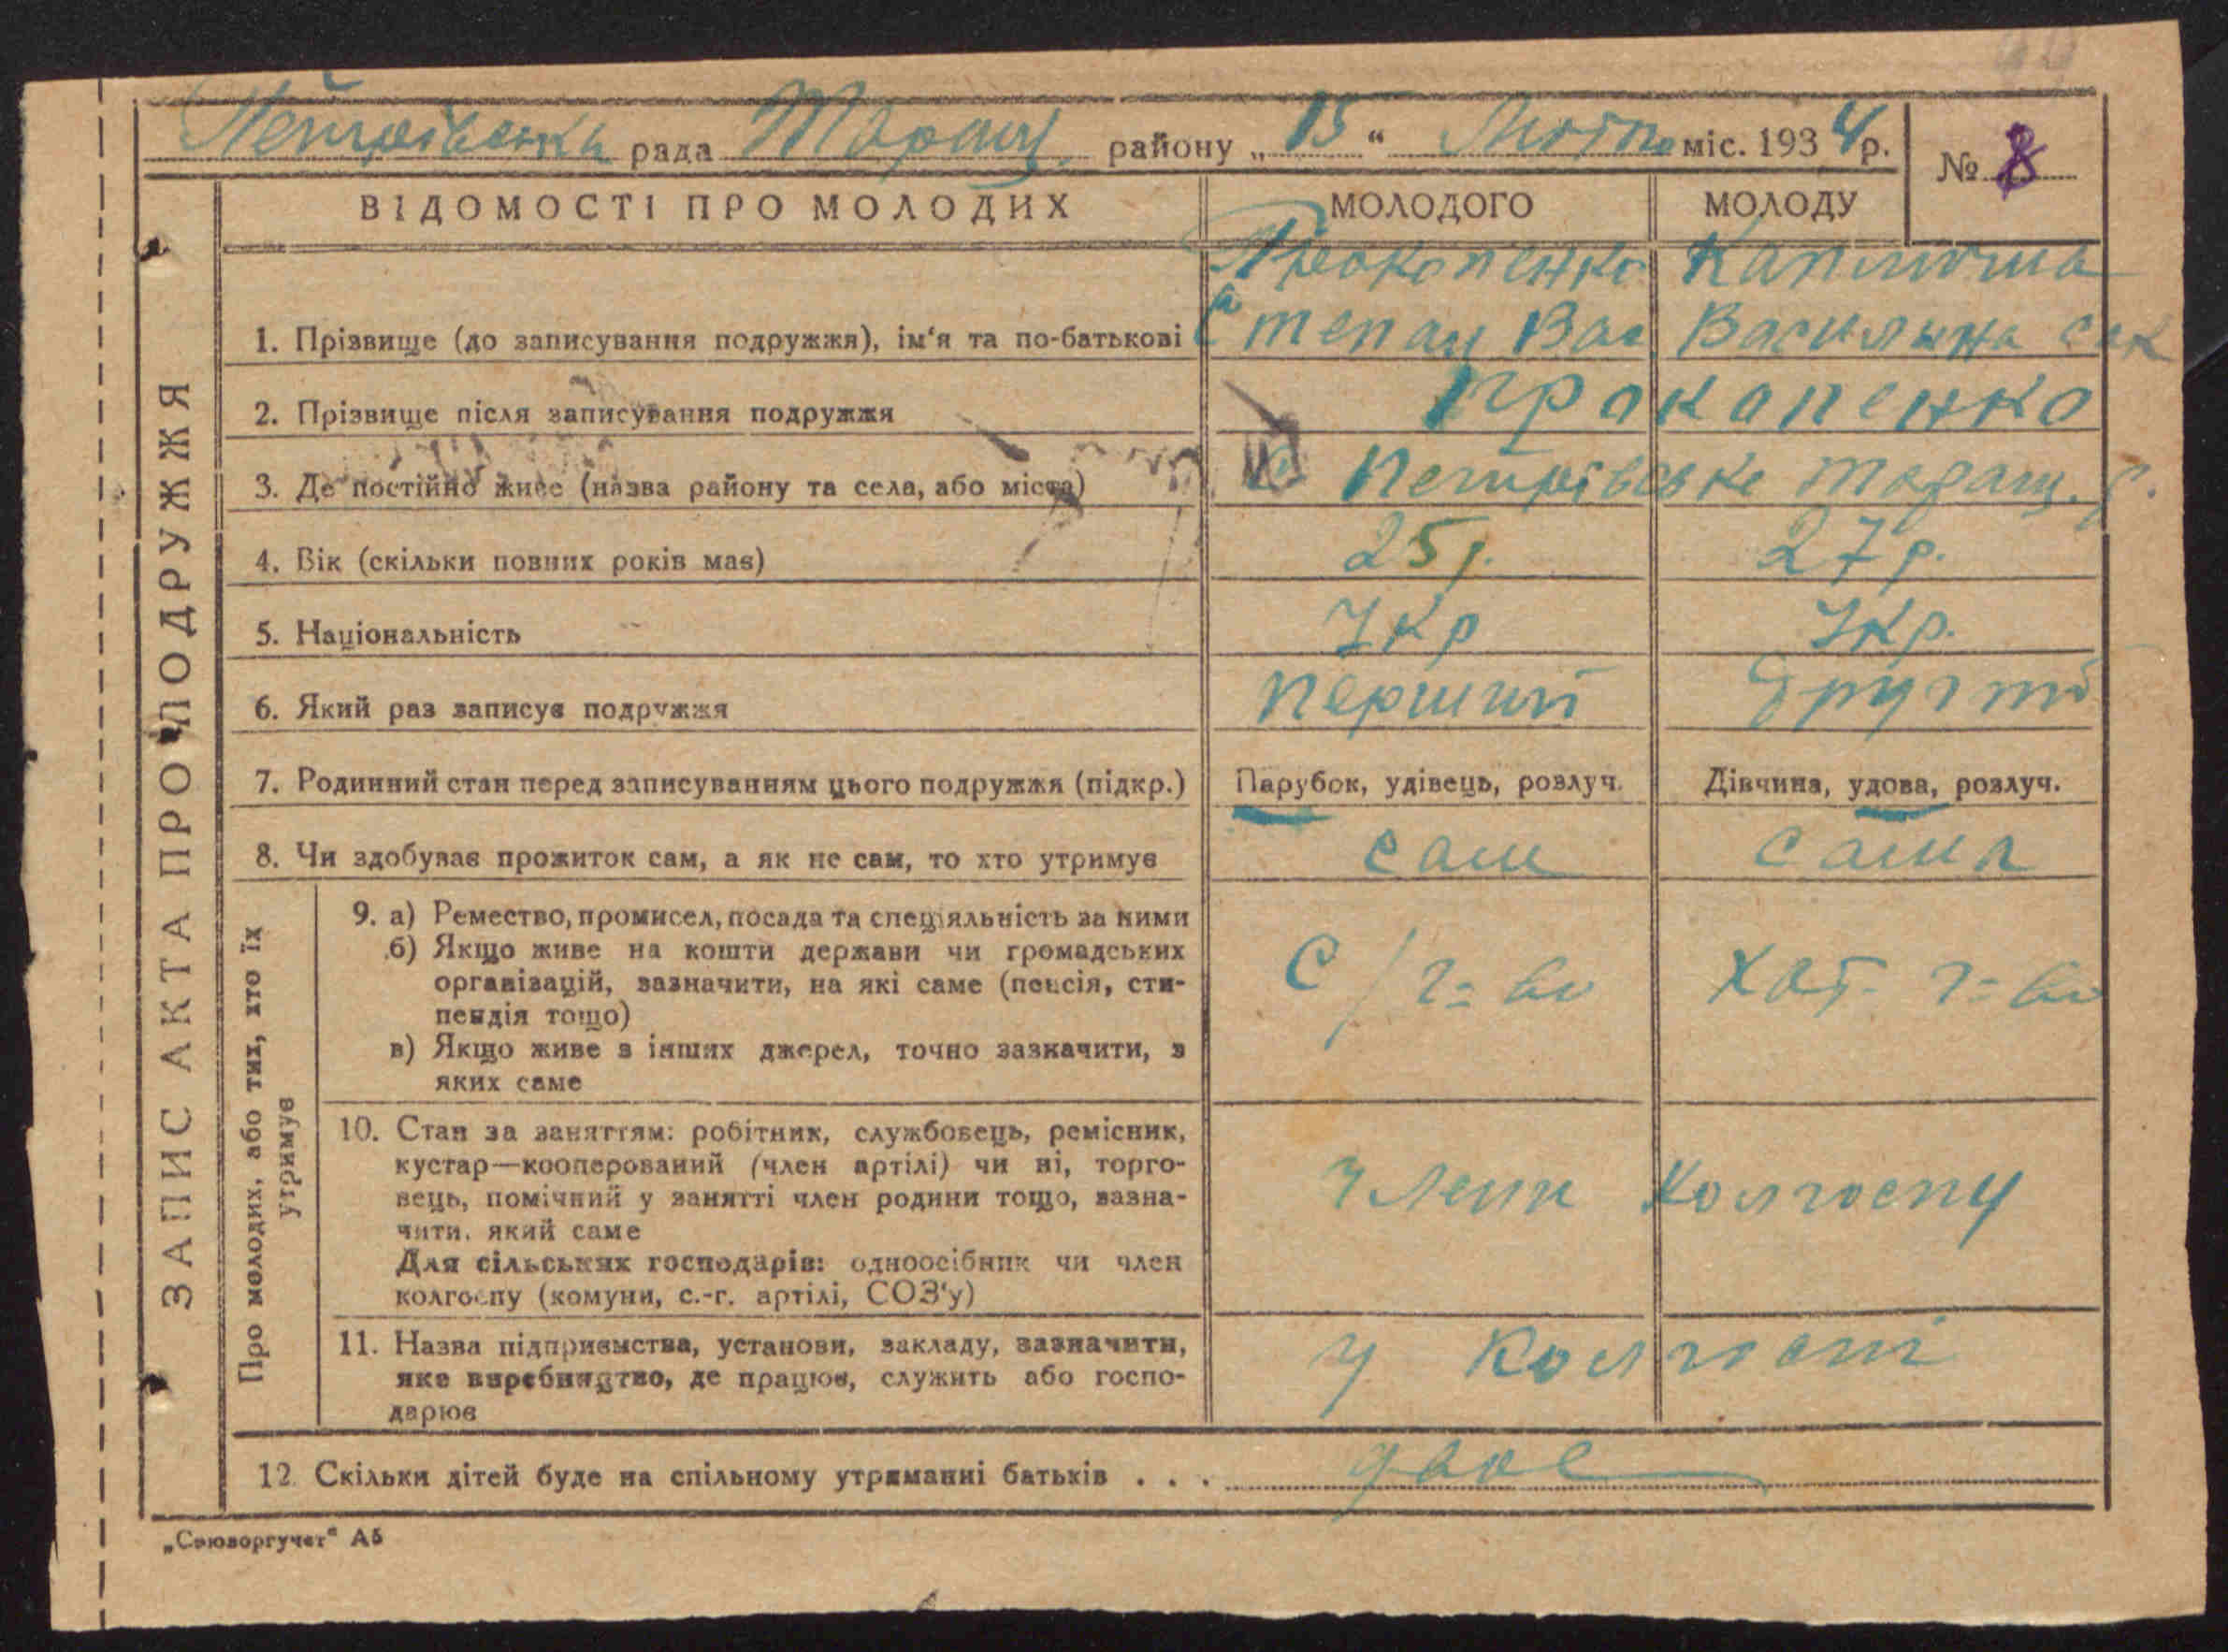 Петрівська рада Таращ. району „15“ Лютого міс. 1934 р.
№ 8
ВІДОМОСТІ ПРО МОЛОДИХ МОЛОДОГО МОЛОДУ
ЗАПИС АКТА ПРО ПОДРУЖЖЯ
Прокопенко
Степан Вас.
Василина
1. Прізвище (до записування подружжя), ім'я та по-батькові
2. Прізвище після записування подружжя Прокопенко
3. Де постійно живе (назва району та села, або міста) с Петрівське Таращ. р.
4. Вік (скільки повних років має) 25 р. 27 р.
5. Національність Укр Укр.
6. Який раз записує подружжя перший другий
7. Родинний стан перед записуванням цього подружжя (підкр.) Парубок, удівець, розлуч. Дівчина, удова, розлуч.
8. Чи здобуває прожиток сам, а як не сам, то хто утримує сам сама
Про молодих, або тих, хто їх утримує
9. а) Ремество, промисел, посада та спеціяльність за ними
б) Якщо живе на кошти держави чи громадських
організацій, зазначити, на які саме (пенсія, сти-
пендія тощо)
в) Якщо живе з інших джерел, точно зазначити, з
яких саме
С/г-во Хат. г-во
10. Стан за заняттям: робітник, службовець, ремісник,
кустар—кооперований (член артілі) чи ні, торго-
вець, помічний у занятті член родини тощо, зазна-
чити, який саме
Для сільських господарів: одноосібник чи член
колгоспу (комуни, с.-г. артілі, СОЗ'у)
Члени Колгоспу
11. Назва підприємства, установи, закладу, зазначити,
яке виробництво, де працює, служить або госпо-
дарює
У Колгоспі
12. Скільки дітей буде на спільному утриманні батьків . . . двоє
„Союзоргучет“ А5